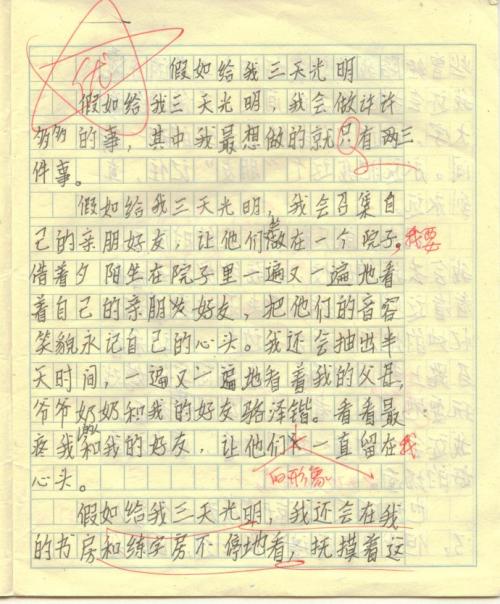 优
假如给我三天光明
假如给我三天光明,我会做许许
多多的事,其中我最想做的就只有两三
件事。
假如给我三天光明,我会召集自
己的亲朋好友,让他们散在一个院子。我要
借着夕阳坐在院子里一遍又一遍地看
着自己的亲朋友好友,把他们的音容
笑貌永记自己的心头。我还会抽出半
天时间,一遍又一遍地看着我的父母,
爷爷奶奶和我的好友骆泽锴。看看最
疼我的人和我的好友,让他们一直留在我
的形象
心头。
假如给我三天光明,我还会在我
的书房和练字房不停地看,抚摸着这